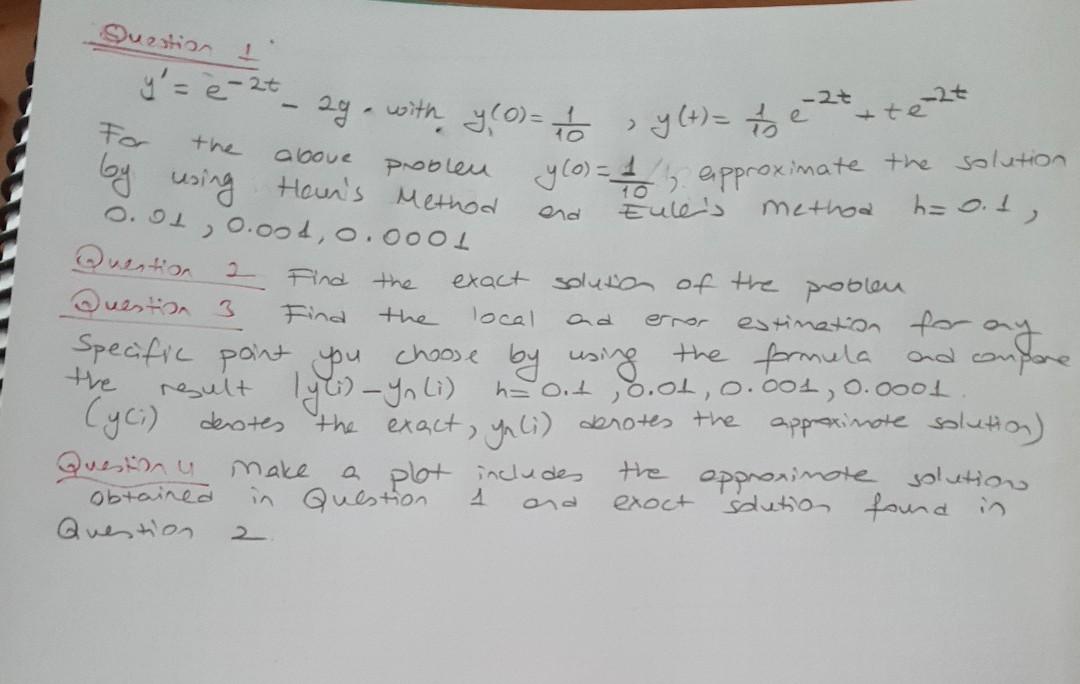 Question 1
y' = e^-2t - 2y . with y(0) = 1/10 , y(t) = 1/10 e^-2t + te^-2t
For the above problem y(0) = 1/10 , approximate the solution
by using Heun's Method and Euler's method h = 0.1 ,
0.01 , 0.001, 0.0001
Question 2 Find the exact solution of the problem
Question 3 Find the local and error estimation for any
Specific point you choose by using the formula and compare
the result |y(i) - yn(i) h = 0.1 , 0.01 , 0.001 , 0.0001.
(y(i) denotes the exact, yn(i) denotes the approximate solution)
Question 4 make a plot includes the approximate solutions
obtained in Question 1 and exact solution found in
Question 2.